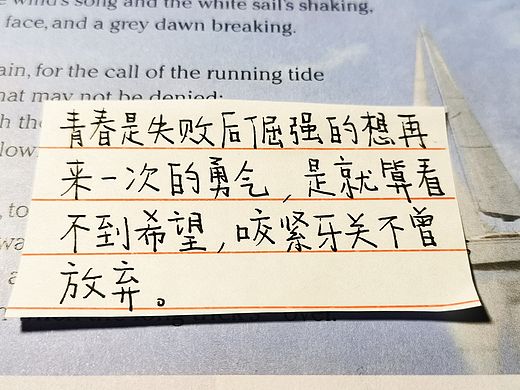 wind's song and the white sail's shaking,
face, and a grey dawn breaking.
ain, for the call of the running tide
hat may not be denied;
青春是失败后倔强的想再
来一次的勇气，是就算看
不到希望，咬紧牙关不曾
放弃。